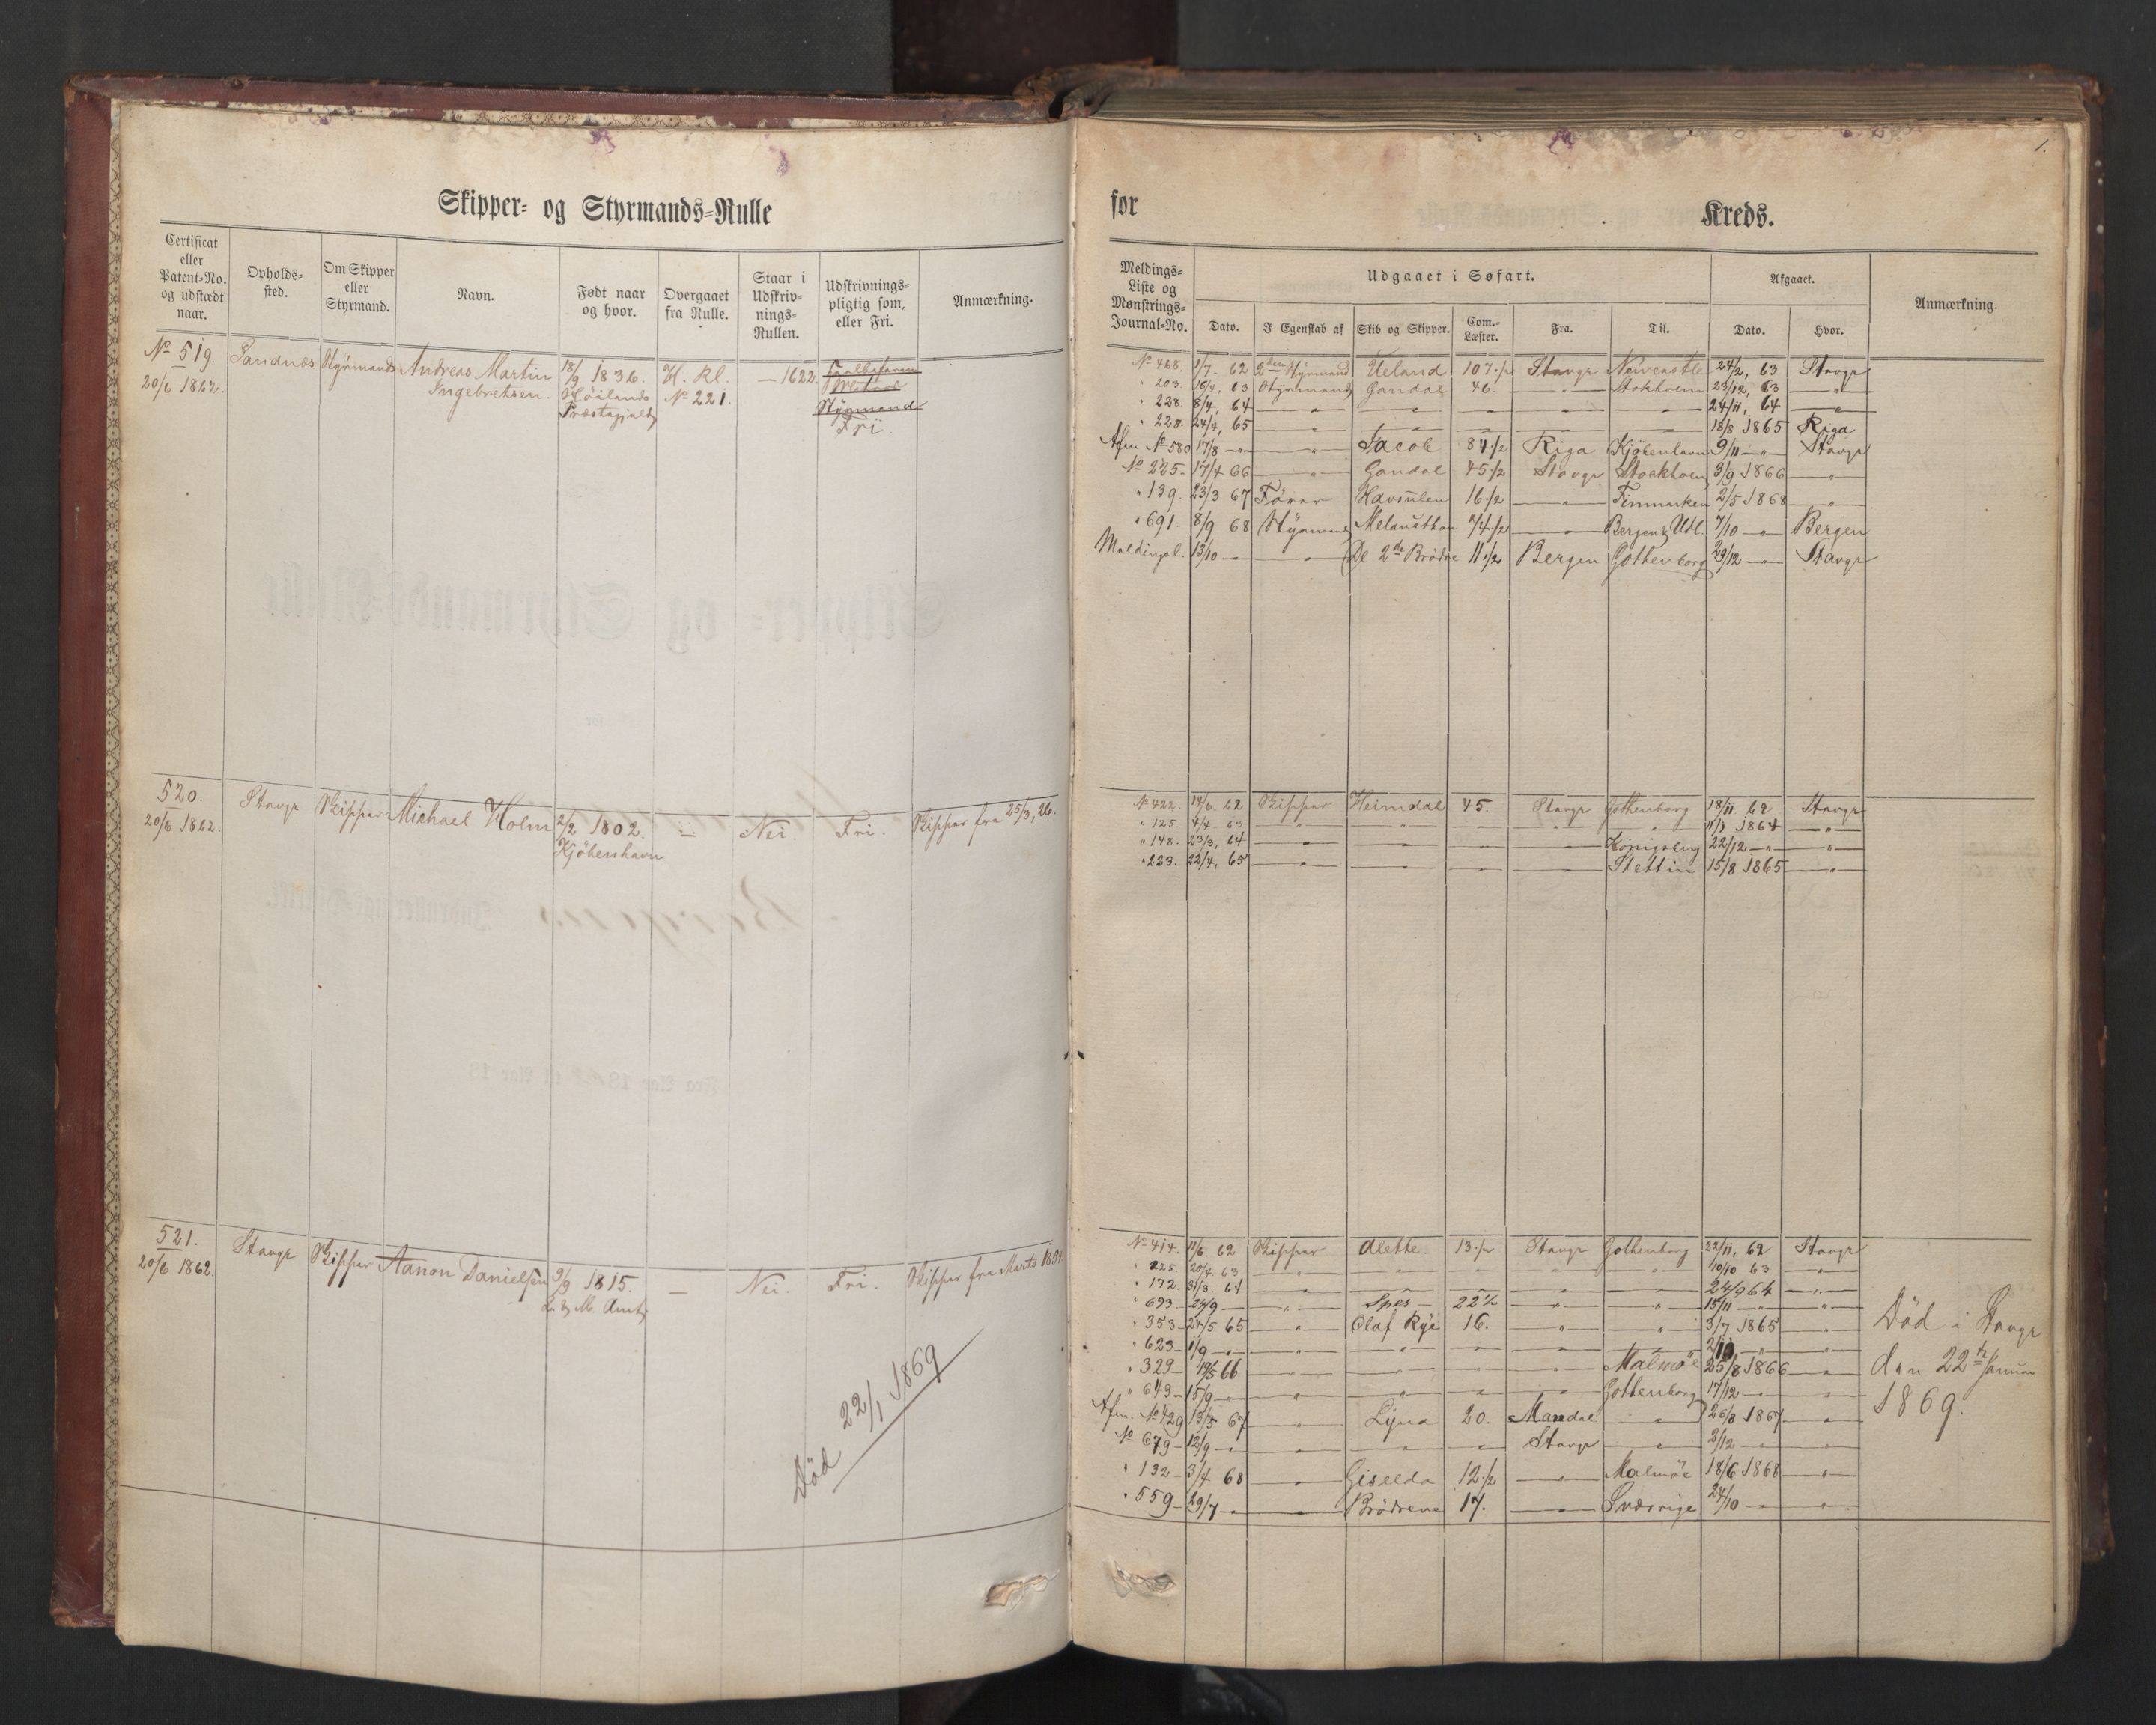 Skipper- og Styrmands-Rulle
Certificat eller Patent-No. og udstædt naar.
Opholds-sted.
Om Skipper eller Styrmand.
Navn.
Født naar og hvor.
Overgaaet fra Rulle.
Staar i Udskriv-nings-Rullen.
Udskrivnings-pligtig som, eller Fri.
Anmærkning.
No 519. 20/6 1862. Sandnæs Styrmand Andreas Martin Ingebretsen. 18/9 1836. Höilands Præstegjæld H. Kl. No 221. — 1622. Styrmand Fri.
520. 20/6 1862. Stavgr Skipper Michael Holm 2/2 1802. Kjöbenhavn — Nei. Fri. Skipper fra 25/3, 26.
521. 20/6 1862. Stavgr Skipper Aanon Danielsen 9/9 1815. L. & M. Amt, — Nei. Fri. Skipper fra Marts
Død 22/1 1869
1.
for Kreds.
Meldings-Liste og Mønstrings-Journal-No.
Udgaaet i Søfart.
Afgaaet.
Anmærkning.
Dato.
I Egenskab af
Skib og Skipper.
Com.-Læster.
Fra.
Til.
Dato.
Hvor.
No 468. 1/7 62 2den Styrmand Ueland 107 1/2 Stavgr Newcastle 24/2, 63 Stavgr
" 203. 18/4, 63 Styrmand Gandal 46. — " — Stokholm 23/12, 63 — " —
" 228. 8/4, 64 — " — — " — — " — — " — — " — 24/11, 64 — " —
" 228. 24/4, 65 — " — — " — — " — — " — — " — 18/8 1865 Riga
Afm No 580 17/8 — " — — " — Jacob 84 1/2 Riga Kjöbenhavn 9/11 — " — Stavgr
No 225 - 17/4 66 — " — Gandal 45 1/2 Stavgr Stockholm 3/9 1866 — " —
" 139. 23/3 67 Förer Havsulen 16 1/2 — " — Finmarken 2/5 1868 — " —
" 691. 8/9 68 Styrmand Melanethon — " — Bergen & Udl. 7/10 — " — Bergen
Meldingsl. 13/10 — " — — " — De 2de Brödre 11 1/2 Bergen Gothenborg 29/12 — " — Stavgr
No 422. 14/6. 62 Skipper Heimdal 45. Stavgr Gothenborg 18/11 62 Stavgr
" 125. 4/4 - 63 — " — — " — — " — — " — — " — 1864 — " —
" 148. 23/3, 64 — " — — " — — " — — " — Königsberg 22/12 — " — — " —
" 223. 22/4, 65 — " — — " — — " — — " — Stettin 15/8 1865 — " —
No 414. 11/6. 62 Skipper Alette. 13 1/2 Stavgr Gothenborg 22/11, 62 Stavgr
" 225. 20/4. 63 — " — — " — — " — — " — — " — 10/10 63 — " —
" 172. 31/3. 64 — " — — " — — " — — " — — " — 24/9 64 — " —
" 693 - 24/9 — — " — Spes — 22 1/2 — " — — " — 15/11 — " — — " —
" 353 - 24/5 65 — " — Olaf Rye 16. — " — — " — 3/7 1865 — " —
" 623 - 1/9 — " — — " — — " — — " — — " — — " — 2/10 — " — — " —
" 329 - 19/5 66 — " — — " — — " — — " — Malmöe 25/8 1866 — " —
" 643 - 15/9 — " — — " — — " — — " — — " — Gothenborg 17/12 — " — — " —
Afm. No 429 13/5 67 — " — Lyna 20. Mandal — " — 26/8 1867 — " —
No 679 - 12/9 — " — — " — — " — — " — Stavgr — " — 3/12 — " — — " —
" 132 - 3/4 68 — " — Giselda 12 1/2 — " — Malmöe 18/6 1868 — " —
" 559 - 29/7 — " — — " — Brödrene 17. — " — Sverrige 24/10 — " — — " —
Død i Stavgr
den 22de Januar
1869.